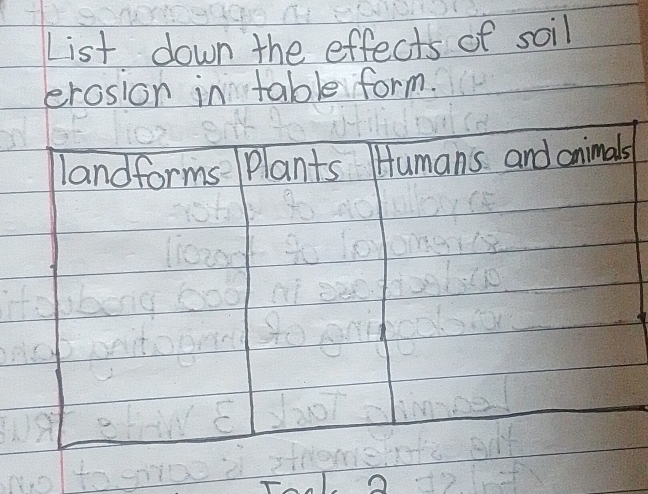 List down the effects of soil
erosion in table form.
landforms Plants Humans and animals
Task 2